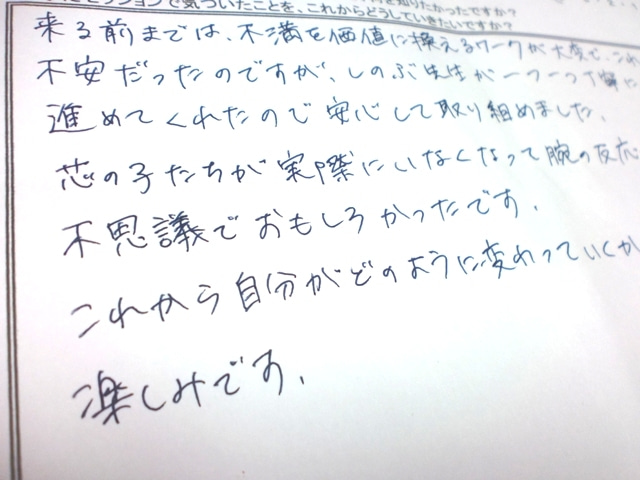 セッションで気づいたことを、これからどうしていきたいですか?
来る前までは、不満を価値に換えるワークが大変で、これ
不安だったのですが、しのぶ先生が一つ一つ丁寧に
進めてくれたので安心して取り組めました。
芯の子たちが実際にいなくなって腕の反応
不思議でおもしろかったです。
これから自分がどのように変わっていくか
楽しみです。